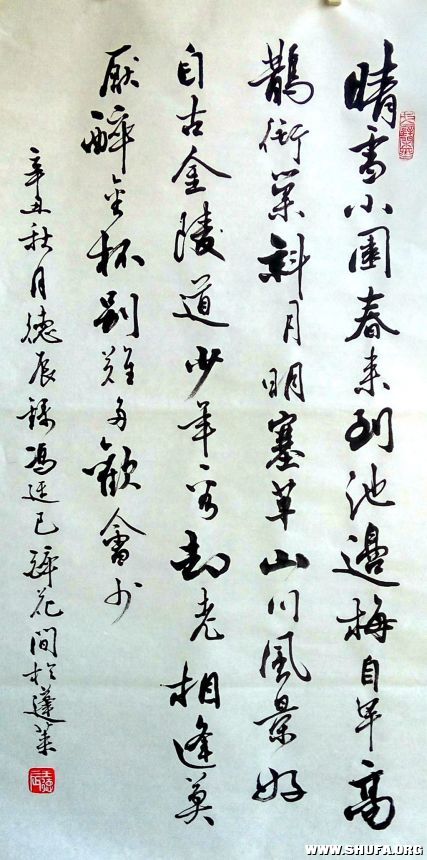 晴雪小園春未到池邊梅自早高
鵲銜巢斜月明寒草山川風景好
自古金陵道少年看却老相逢莫
厭醉金杯別離多歡會少
辛丑秋月德辰録馮延巳醉花間於蓬萊
WWW.SHUFA.ORG